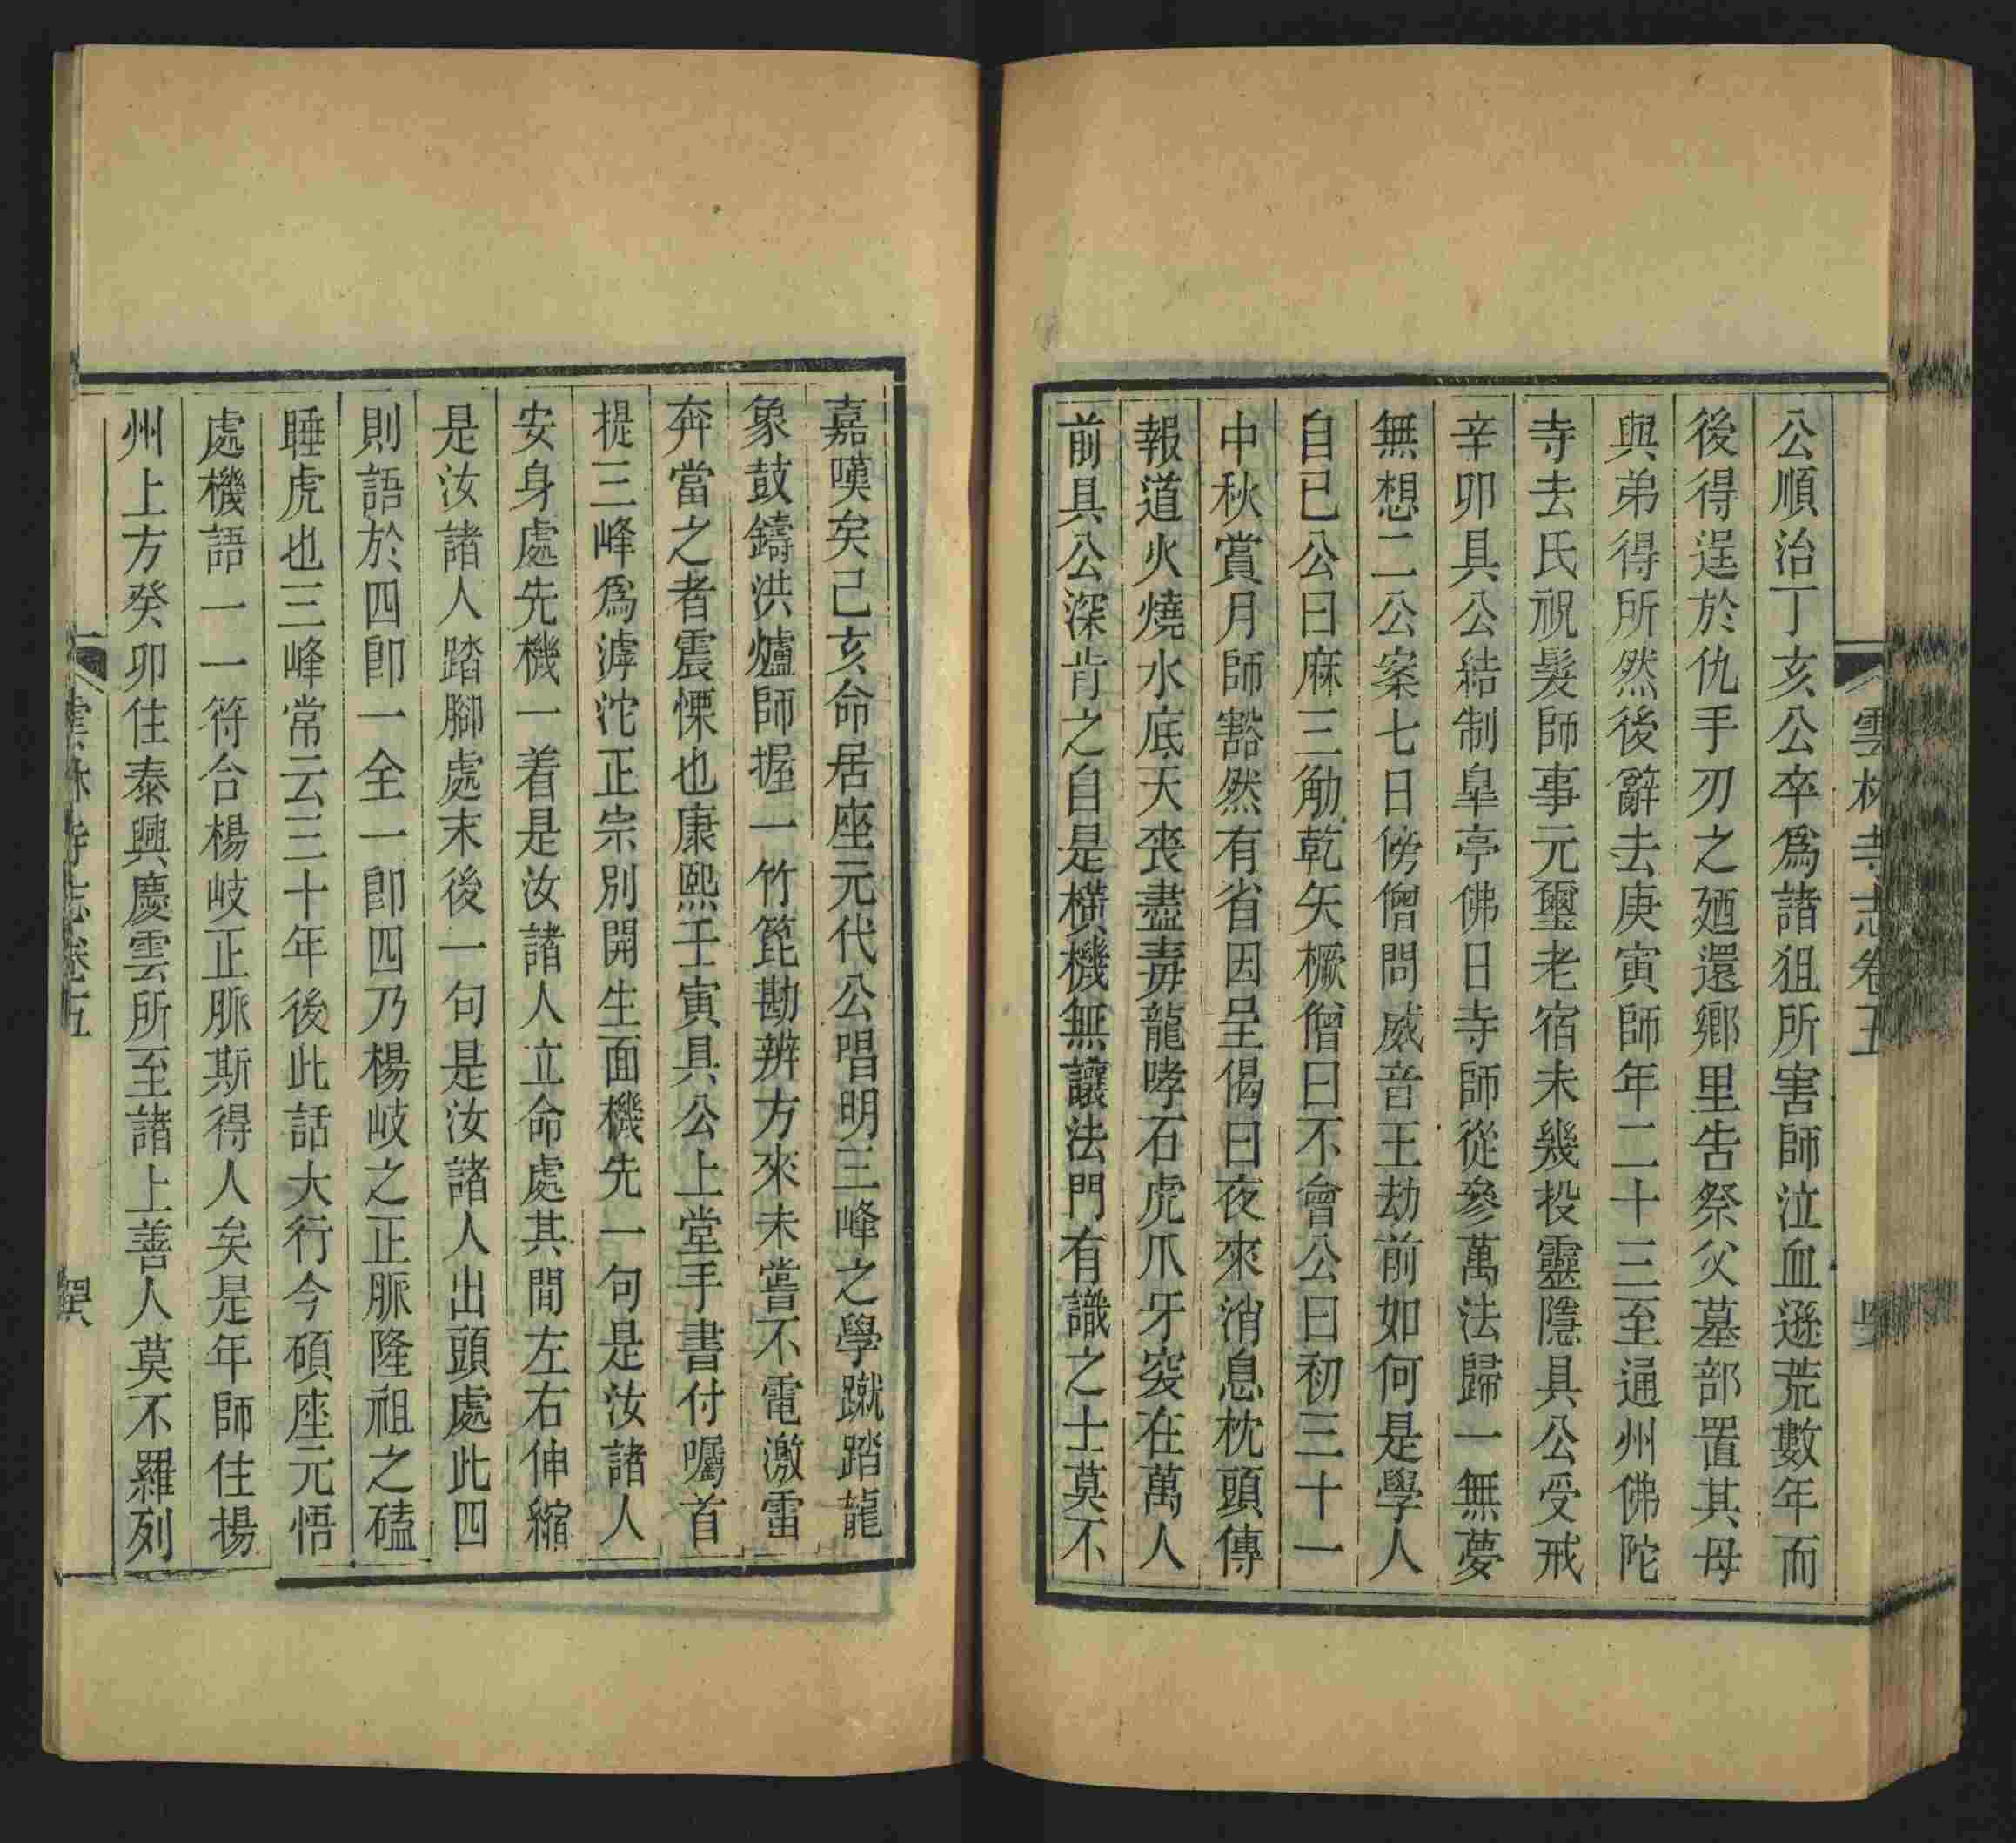 雲林寺志卷五
公順治丁亥公卒爲諸狙所害師泣血遜荒數年而
後得逞於仇手刃之廼還鄉里告祭父墓部置其母
與弟得所然後辭去庚寅師年二十三至通州佛陀
寺去氏祝髮師事元璽老宿未幾投靈隱具公受戒
辛卯具公結制皐亭佛日寺師從參萬法歸一無夢
無想二公案七日傍僧問威音王劫前如何是學人
自已公曰麻三觔乾矢橛僧曰不會公曰初三十一
中秋賞月師豁然有省因呈偈曰夜來消息枕頭傳
報道火燒水底天喪盡毒龍哮石虎爪牙突在萬人
前具公深肯之自是橫機無讓法門有識之士莫不
嘉嘆矣己亥命居座元代公唱明三峰之學蹴踏龍
象鼓鑄洪爐師握一竹箆勘辨方來未嘗不電激雷
奔當之者震慄也康熙壬寅具公上堂手書付囑首
提三峰爲滹沱正宗別開生面機先一句是汝諸人
安身處先機一着是汝諸人立命處其間左右伸縮
是汝諸人踏腳處末後一句是汝諸人出頭處此四
則語於四卽一全一卽四乃楊岐之正脈隆祖之磕
睡虎也三峰常云三十年後此話大行今碩座元悟
處機語一一符合楊岐正脈斯得人矣是年師住揚
州上方癸卯住泰興慶雲所至諸上善人莫不羅列
雲林寺志卷五